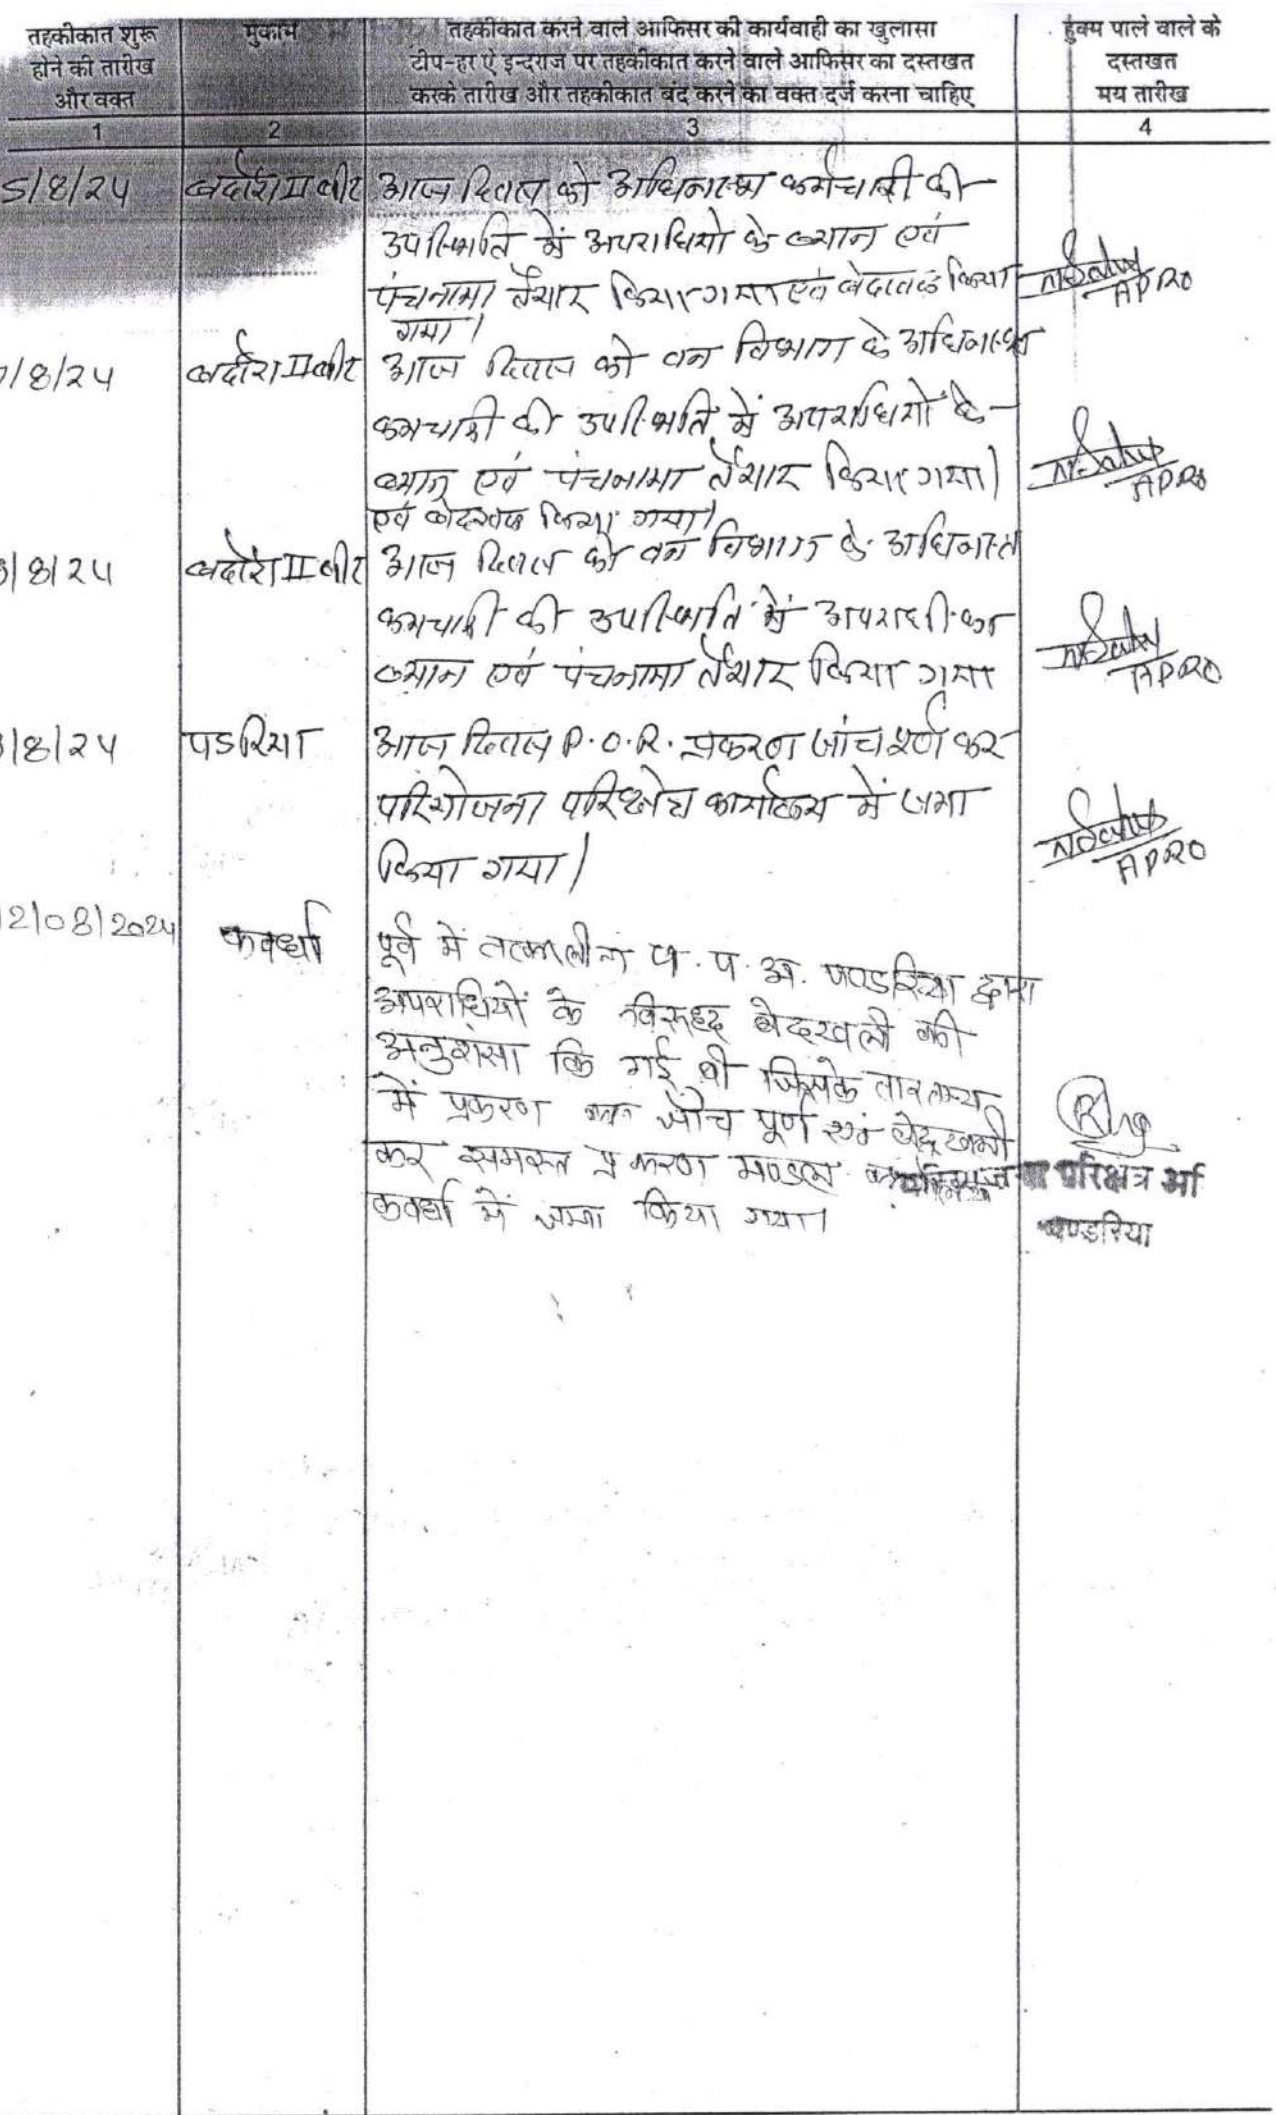 तहकीकात शुरू
होने की तारीख
और वक्त
मुकाम
तहकीकात करने वाले आफिसर की कार्यवाही का खुलासा
टीप-हर ऐ इन्दराज पर तहकीकात करने वाले आफिसर का दस्तखत
करके तारीख और तहकीकात बंद करने का वक्त दर्ज करना चाहिए
हुक्म पाले वाले के
दस्तखत
मय तारीख
1 2 3 4
5/8/24 बदौरा II बीट आज दिवस को अधिनस्थ कर्मचारी की
उपस्थिति में अपराधियो के ब्यान एवं
पंचनामा तैयार किया गया एवं बेदखल किया
गया।
APRO
/8/24 बदौरा II बीट आज दिवस को वन विभाग के अधिनस्थ
कर्मचारी की उपस्थिति में अपराधियों के
ब्यान एवं पंचनामा तैयार किया गया।
एवं बेदखल किया गया।
APRO
/8/24 बदौरा II बीट आज दिवस को वन विभाग के अधिनस्त
कर्मचारी की उपस्थिति में अपराधी का
ब्यान एवं पंचनामा तैयार किया गया
APRO
/8/24 पडरिया आज दिवस P.O.R. प्रकरण जांच पूर्ण कर
परियोजना परिक्षेत्र कार्यालय में जमा
किया गया।
APRO
2/08/2024 कवर्धा पूर्व में तत्कालीन प. प. अ. पण्डरिया द्वारा
अपराधियों के विरूध्द बेदखली की
अनुशंसा कि गई थी जिसके तारतम्य
में प्रकरण का जाँच पूर्ण एवं बेदखली
कर समस्त प्रकरण मण्डल
कवर्धा में जमा किया गया।
परिक्षेत्र
पण्डरिया